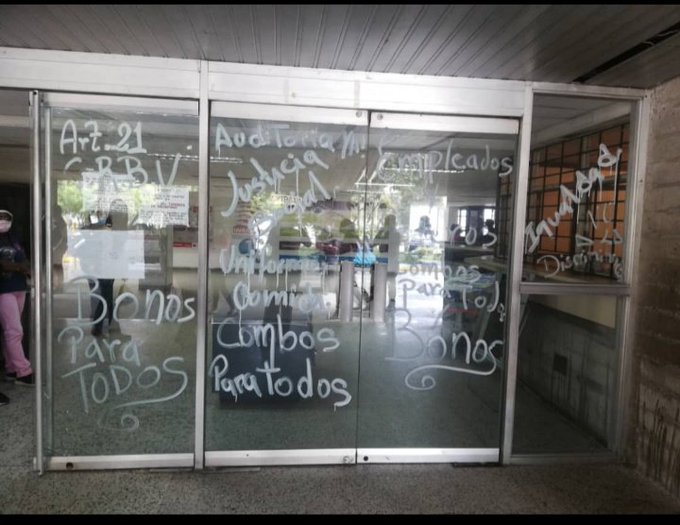 Art. 21
C.R.B.V
Bonos
Para
TODOS
Auditoria
Justicia
Social
Uniformes
Comida
Combos
Para Todos
Empleados
Combos
Para Tod.
Bonos
Igualdad